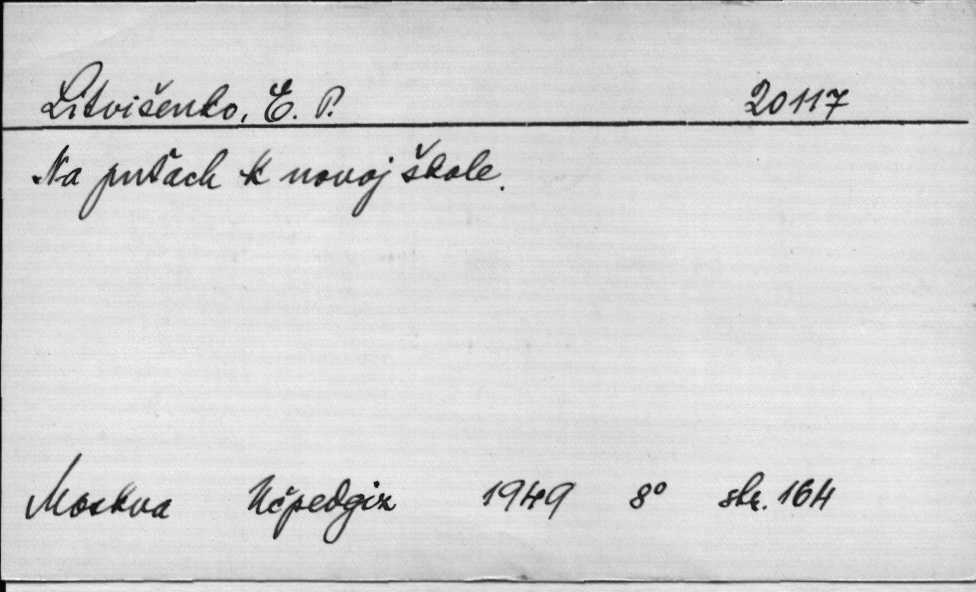 Litvišenko, E. P. 20117
Na puťach k novoj škole.
Moskva Učpedgiz 1949 8° str. 164